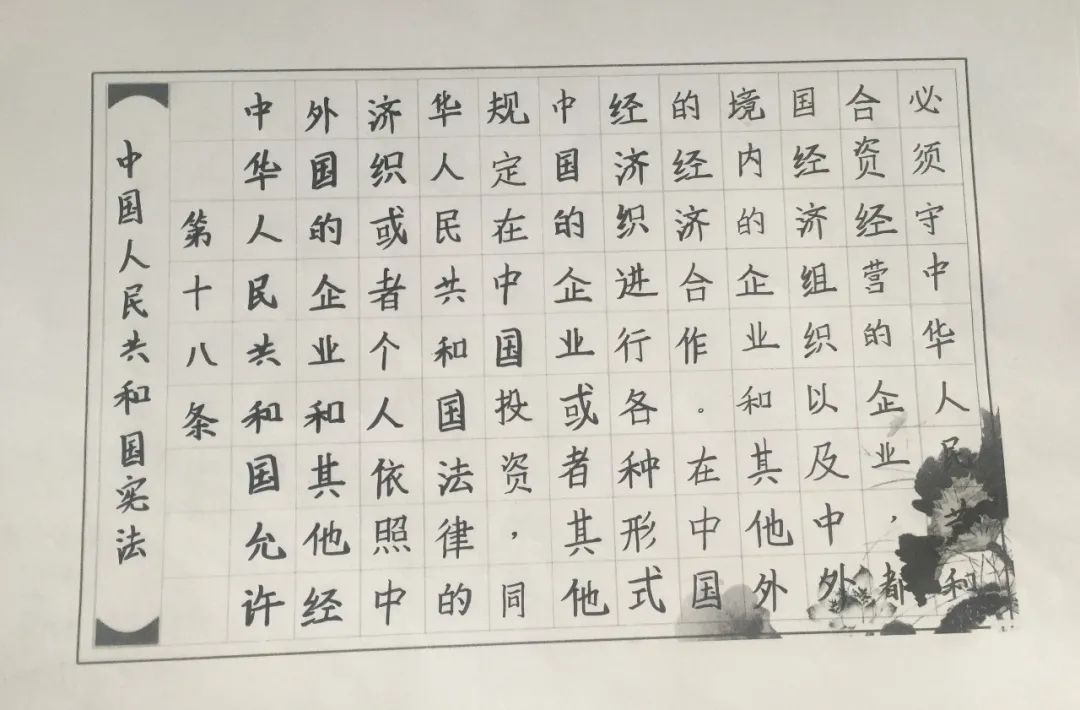 中国人民共和国宪法
第十八条
中华人民共和国允许
外国的企业和其他经
济织或者个人依照中
华人民共和国法律的
规定在中国投资，同
中国的企业或者其他
经济织进行各种形式
的经济合作。在中国
境内的企业和其他外
国经济组织以及中外
合资经营的企业，都
必须守中华人民共和